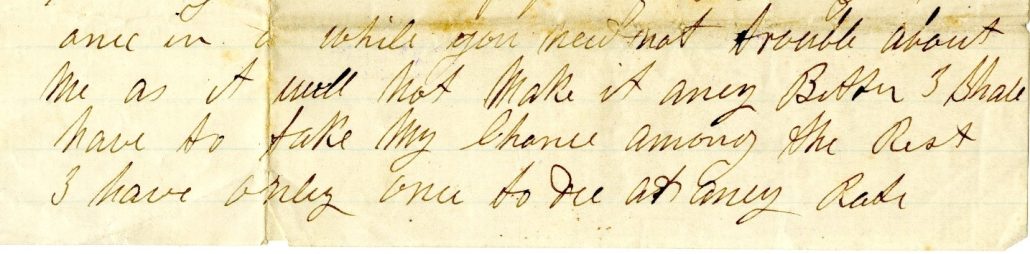 once in a while you need not trouble about
me as it will not make it aney Better I Shall
have to take My Chance among the Rest
I have onley once to Die at aney Rate